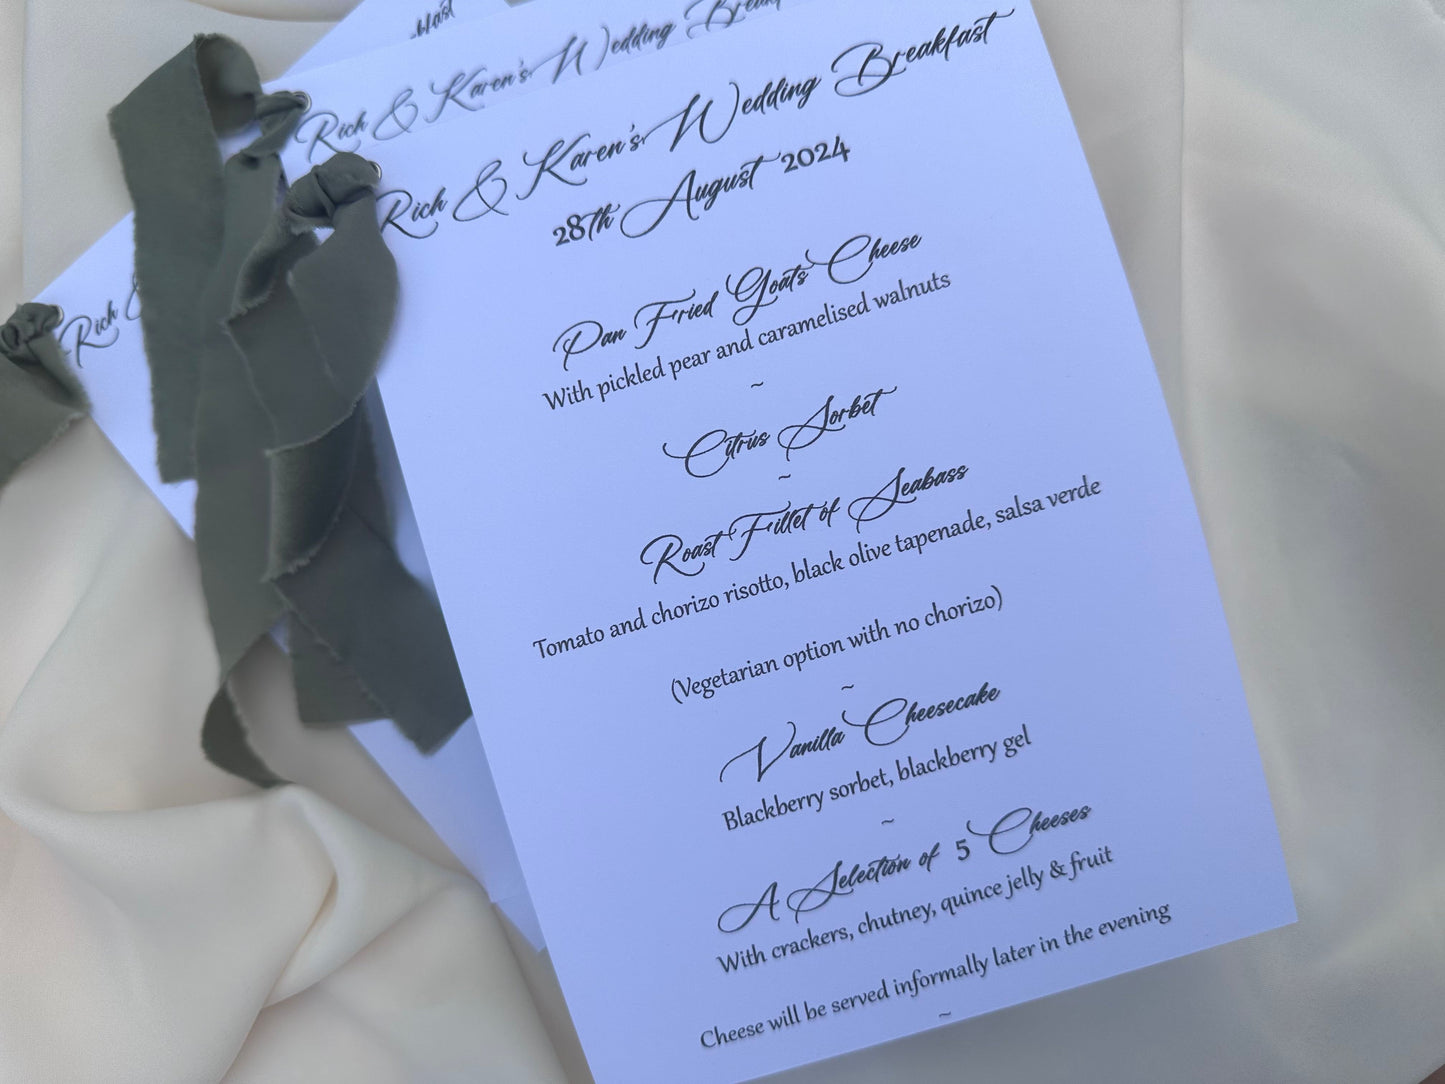 kfast
Rich & Karen's Wedding Breakf
Rich & Karen's Wedding Breakfast
28th August 2024
Pan Fried Goats Cheese
With pickled pear and caramelised walnuts
~
Citrus Sorbet
~
Roast Fillet of Seabass
Tomato and chorizo risotto, black olive tapenade, salsa verde
(Vegetarian option with no chorizo)
~
Vanilla Cheesecake
Blackberry sorbet, blackberry gel
~
A Selection of 5 Cheeses
With crackers, chutney, quince jelly & fruit
Cheese will be served informally later in the evening
~
Rich &